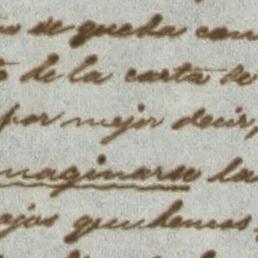 de queba con
de la carta de
por mejor decir,
maginarse la
ojos que hemos